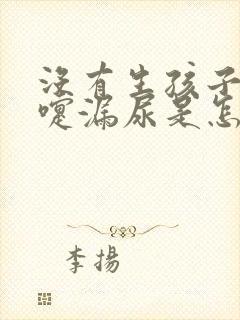 没有生孩子
嚏漏尿是怎
李揚